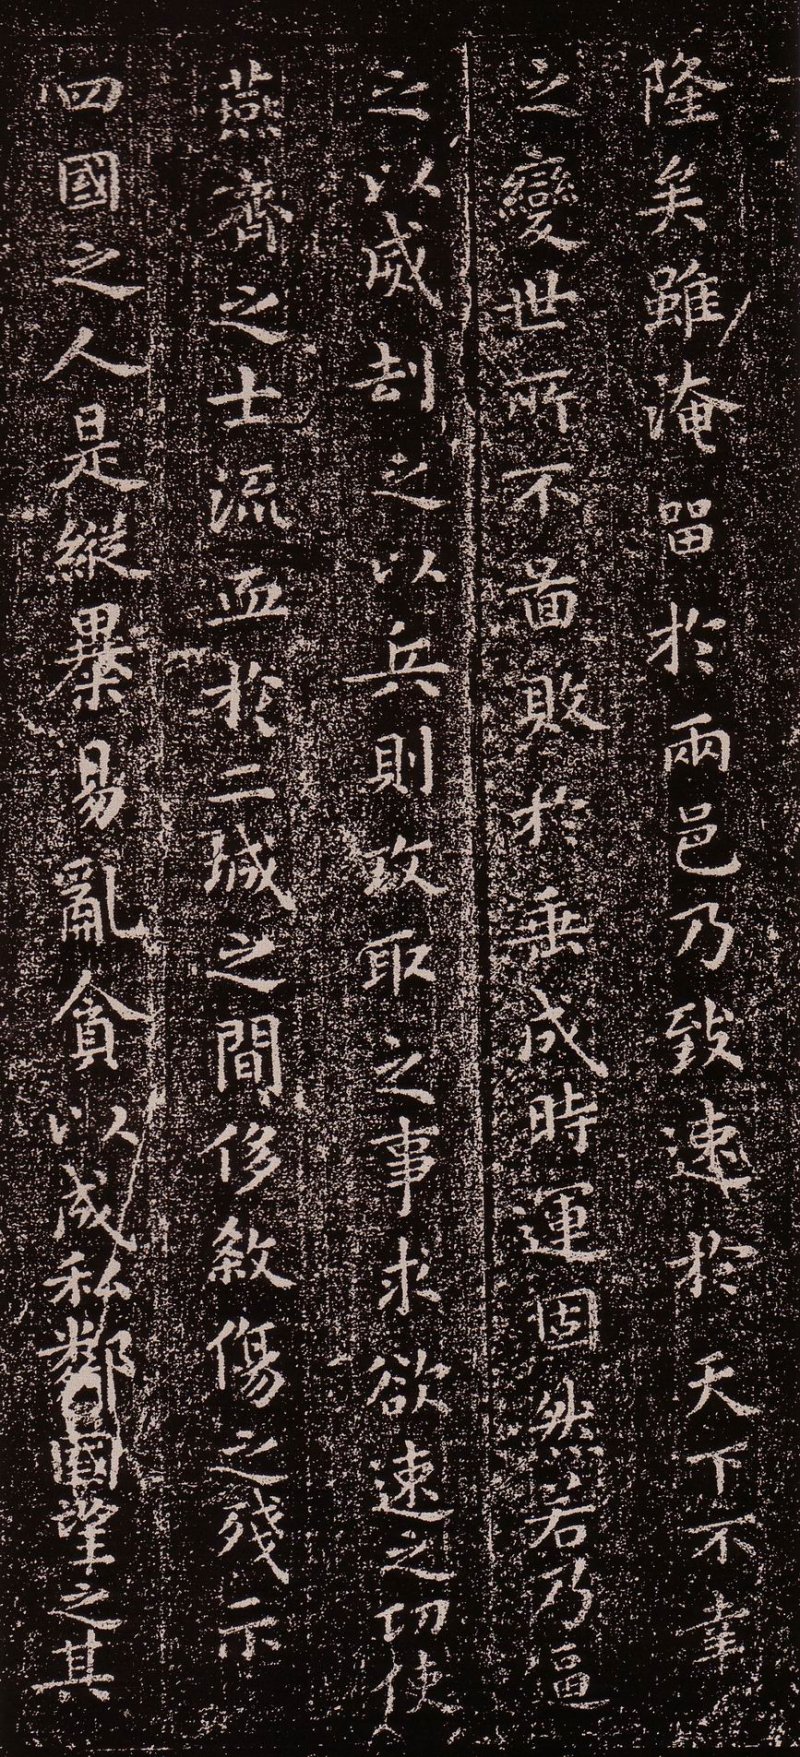 隆矣雖淹留於兩邑乃致速於天下不幸
之變世所不啚敗於垂成時運固然若乃逼
之以威刦之以兵則攻取之事求欲速之功使
燕齊之士流血於二城之間侈敘傷之殘示
四國之人是縱暴易亂貪以成私鄰國望之其